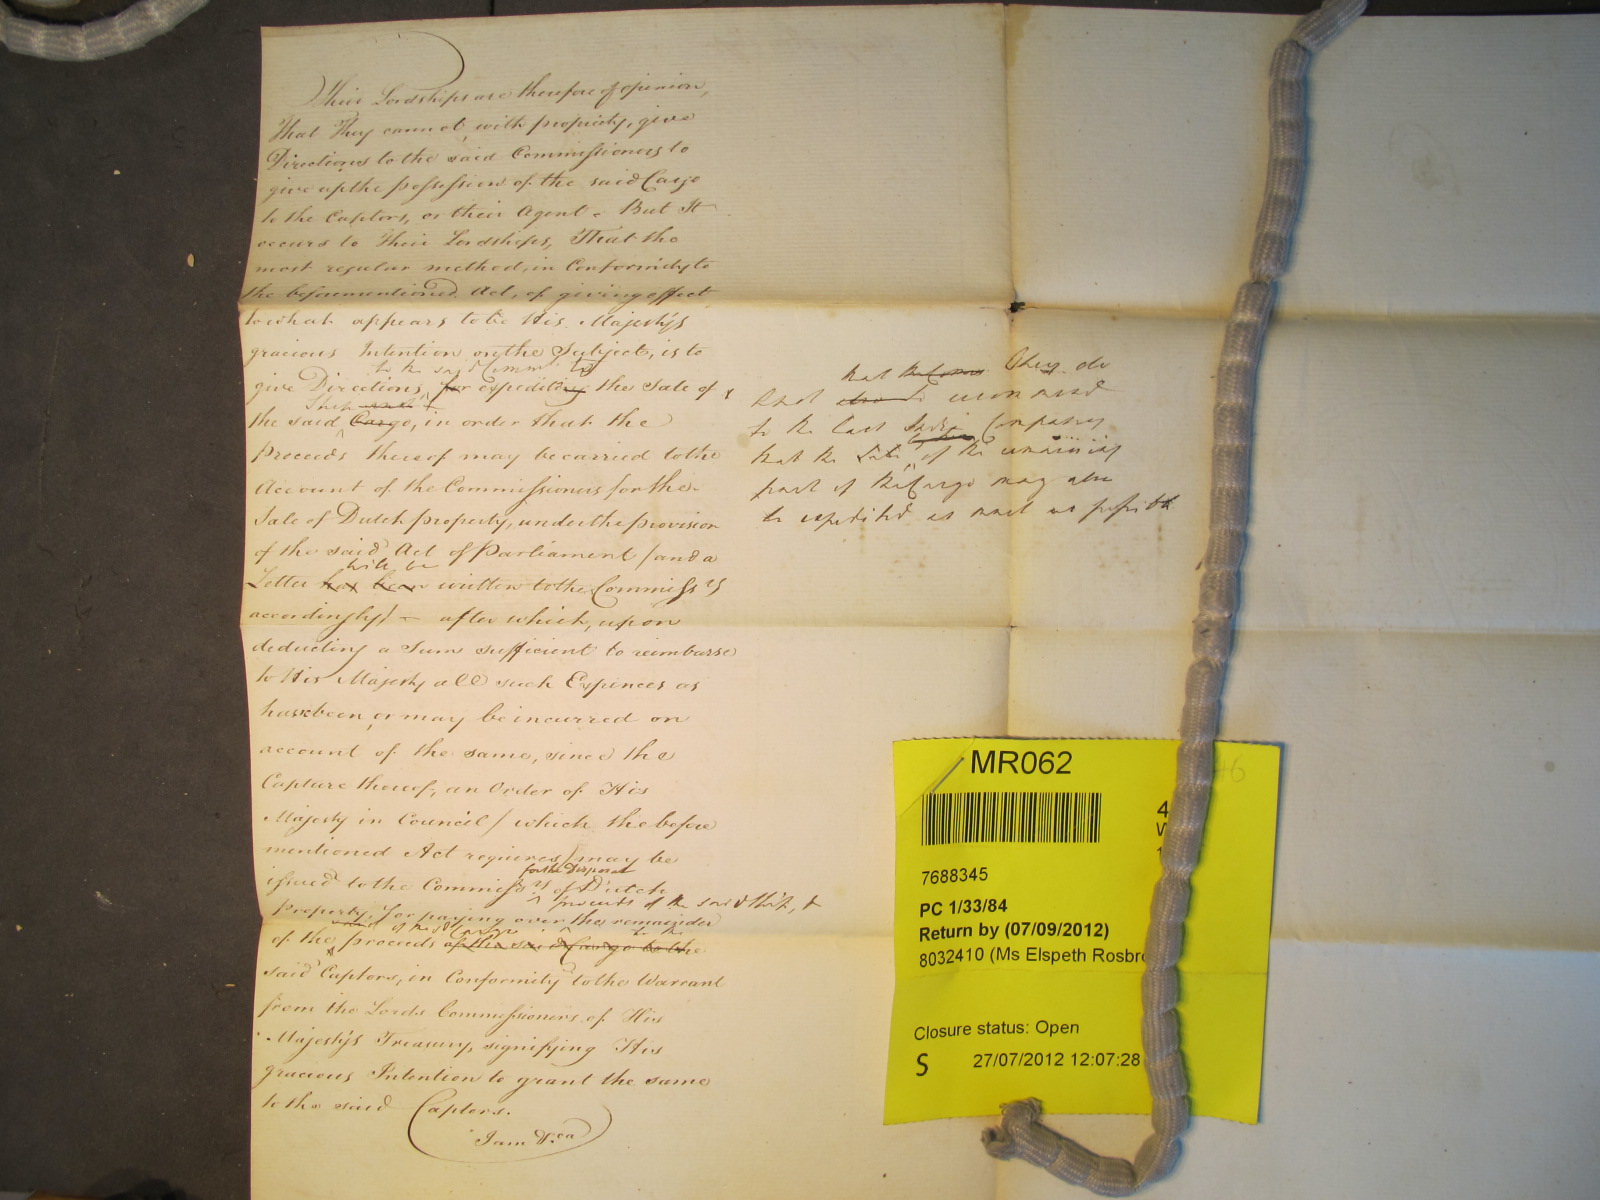 Their Lordships are therefore of opinion,
That They cannot, with propriety, give
Directions to the said Commissioners to
give up the possession of the said Cargo
to the Captors, or their Agent - But It
occurs to Their Lordships, That the
most regular method, in Conformity to
the beforementioned Act, of giving effect
to what appears to be His Majesty's
gracious Intention on the Subject, is to
to the said Comm
give Directions, for expediting the Sale of
Ship and
the said Cargo, in order that the
Proceeds thereof may be carried to the
Account of the Commissioners for the
Sale of Dutch property, under the provision
of the said Act of Parliament (and a
will be
Letter has been written to the Commissrs
accordingly) - after which, upon
deducting a Sum sufficient to reimburse
to His Majesty all such Expences as
have been, or may be incurred on
account of the same, since the
Capture thereof, an Order of His
Majesty in Council (which the before
mentioned Act requires) may be
for the Disposal
issued to the Commissrs of Dutch
proceeds of the said Ship, &
Property, for paying over the remainder
of the Cargo to the
of the proceeds of the said Cargo to the
said Captors, in Conformity to the Warrant
from the Lords Commissioners of His
Majesty's Treasury, signifying His
gracious Intention to grant the same
to the said Captors.
I am &ca
that They do
not to recommend
to the East India Company
that the Sale of the remaining
part of the Cargo may also
be expedited as much as possible
MR062
46
4
7688345
PC 1/33/84
Return by (07/09/2012)
8032410 (Ms Elspeth Rosbro
Closure status: Open
S 27/07/2012 12:07:28